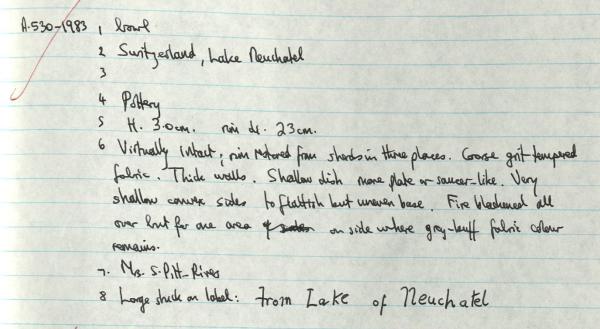 A.530-1983 1 bowl
2 Switzerland, Lake Neuchatel
3
4 Pottery
5 H. 3.0cm. rim di. 23cm.
6 Virtually intact; rim restored from sherds in three places. Coarse grit-tempered
fabric. Thick walls. Shallow dish more plate or saucer-like. Very
shallow convex sides to flattish but uneven base. Fire blackened all
over but for one area on side where grey-buff fabric colour
remains.
7. Mrs. S. Pitt-Rivers
8 Large stuck on label: From Lake of Neuchatel